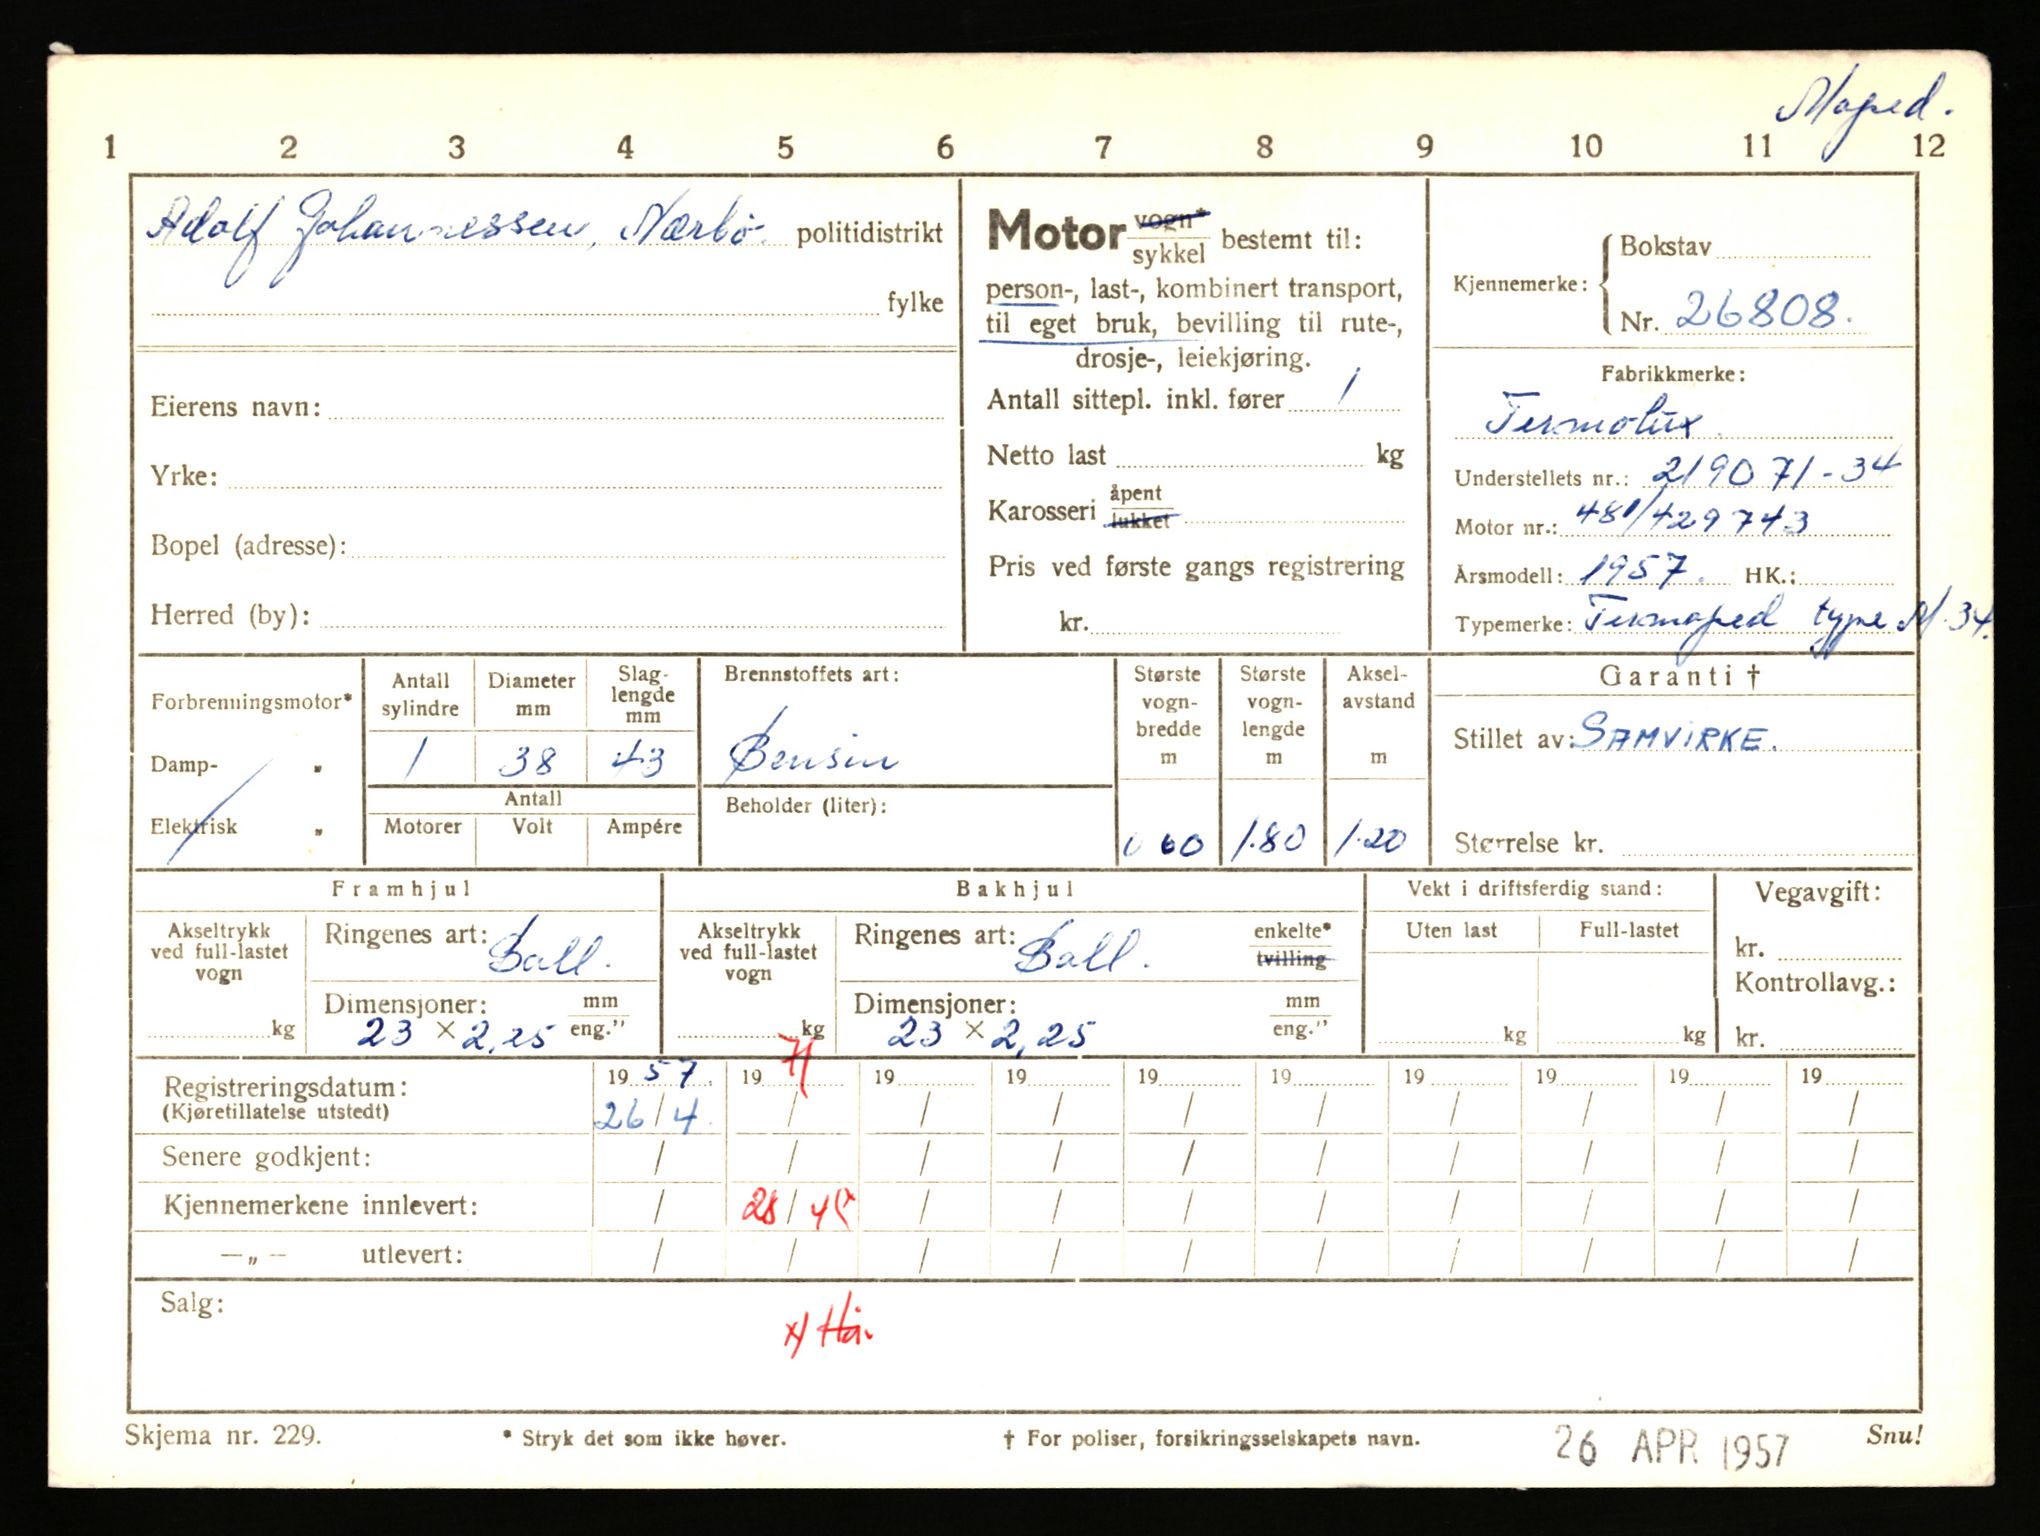 Moped.
1 2 3 4 5 6 7 8 9 10 11 12
Adolf Johannessen, Nærbö. politidistrikt
fylke
Eierens navn:
Yrke:
Bopel (adresse):
Herred (by):
Motor vogn* / sykkel bestemt til:
person-, last-, kombinert transport,
til eget bruk, bevilling til rute-,
drosje-, leiekjøring.
Antall sittepl. inkl. fører 1
Netto last kg
Karosseri åpent / lukket
Pris ved første gangs registrering
kr.
Kjennemerke: Bokstav
Nr. 26808.
Fabrikkmerke:
Termolux.
Understellets nr.: 219071-34
Motor nr.: 481/429743
Årsmodell: 1957. HK.:
Typemerke: Termoped type M.34.
Forbrenningsmotor*
Damp- „
Elektrisk „
Antall sylindre
Diameter mm
Slag-lengde mm
1 38 43
Antall
Motorer Volt Ampére
Brennstoffets art:
Bensin
Beholder (liter):
Største vogn-bredde m
Største vogn-lengde m
Aksel-avstand m
0 60 1.80 1.20
Garanti †
Stillet av: SAMVIRKE.
Størrelse kr.
Framhjul
Akseltrykk
ved full-lastet
vogn
kg
Ringenes art: Ball.
Dimensjoner: mm
23 × 2,25 eng."
Bakhjul
Akseltrykk
ved full-lastet
vogn
kg
Ringenes art: Ball. enkelte* / tvilling
Dimensjoner: mm
23 × 2,25 eng."
Vekt i driftsferdig stand:
Uten last Full-lastet
kg kg
Vegavgift:
kr.
Kontrollavg.:
kr.
Registreringsdatum: 19 57. 19 71 19 19 19 19 19 19 19 19
(Kjøretillatelse utstedt) 26/4. / / / / / / / / /
Senere godkjent: / / / / / / / / / /
Kjennemerkene innlevert: / 28/4 x / / / / / / / /
—„— utlevert: / / / / / / / / / /
Salg:
x/ Hå.
Skjema nr. 229. * Stryk det som ikke høver. † For poliser, forsikringsselskapets navn. 26 APR 1957 Snu!